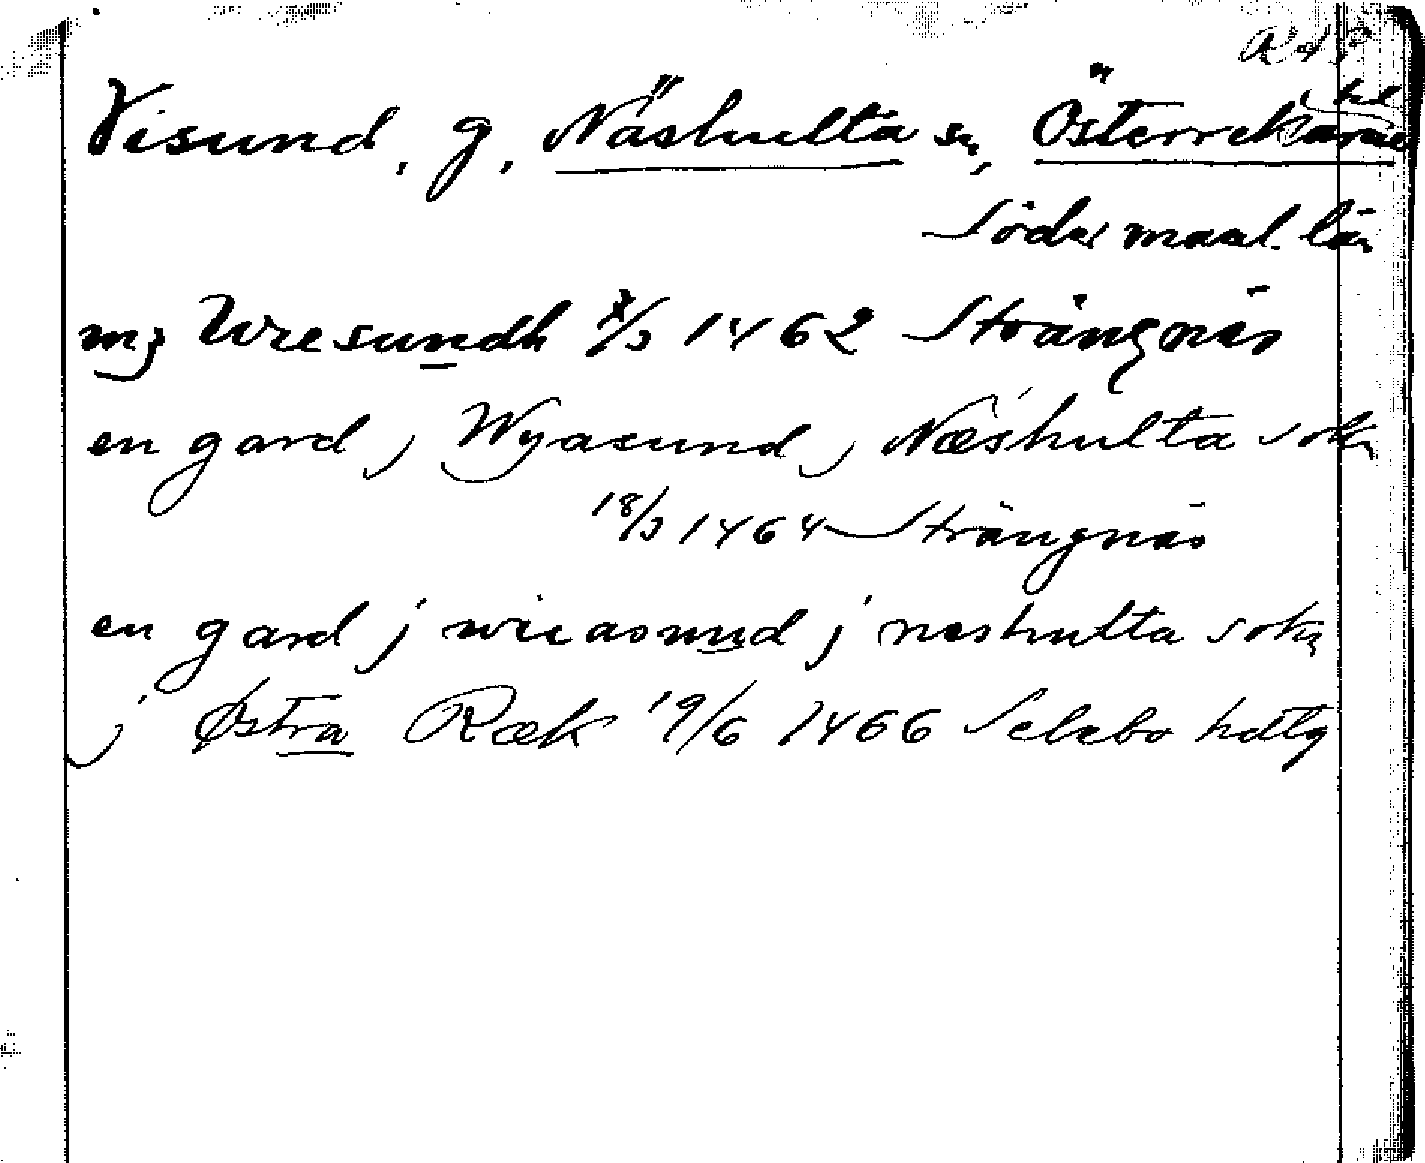 Visund, g. Näshulta sn, Österrekarne hd
Södermanl. län
mz Wresundh 8/3 1462 Strängnäs
en gard j Wyasund j Næshulta sokn
18/3 1464 Strängnäs
en gard j wieasund j neshulta sokn
j Østra Ræk 19/6 1466 Selebo hdtg